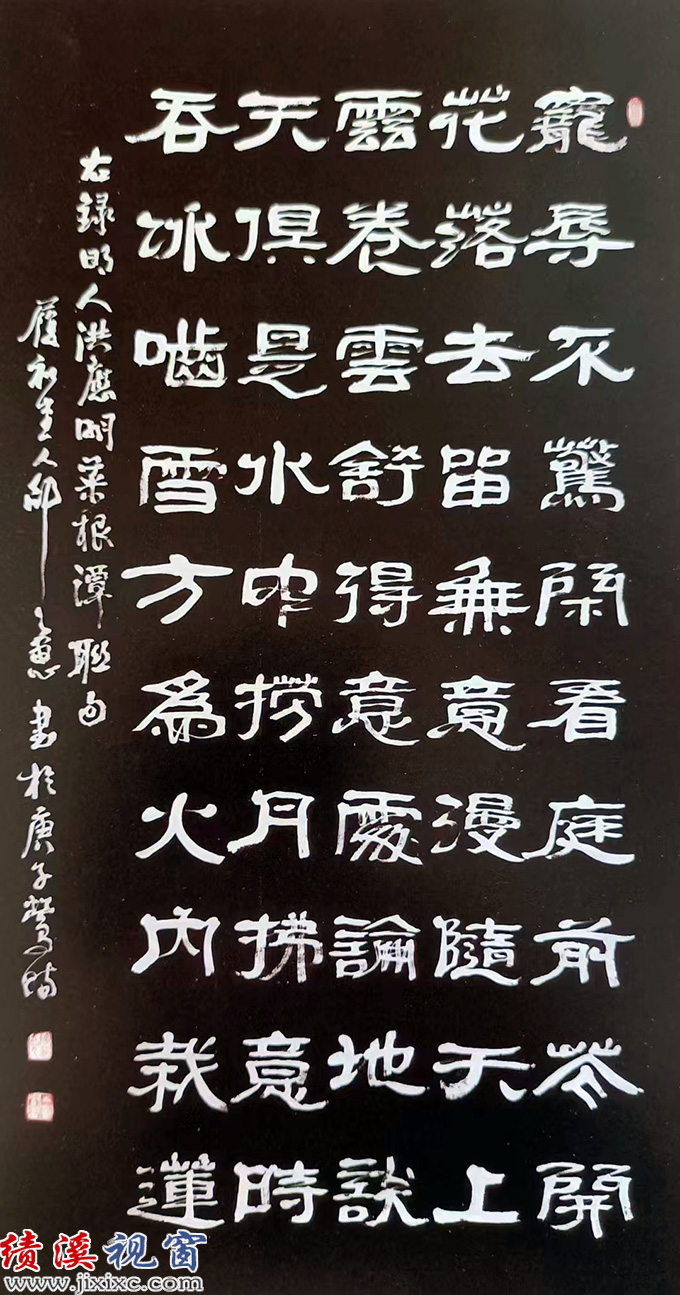 寵辱不驚閑看庭前芲開
花落去留無意漫隨天上
雲卷雲舒得意處論地談
天俱是水中撈月拂意時
吞冰噛雪方爲火內栽蓮
右録明人洪應明菜根潭聯句
履初主人邵之惠書於庚子鶯時
绩溪视窗
www.jixixc.com